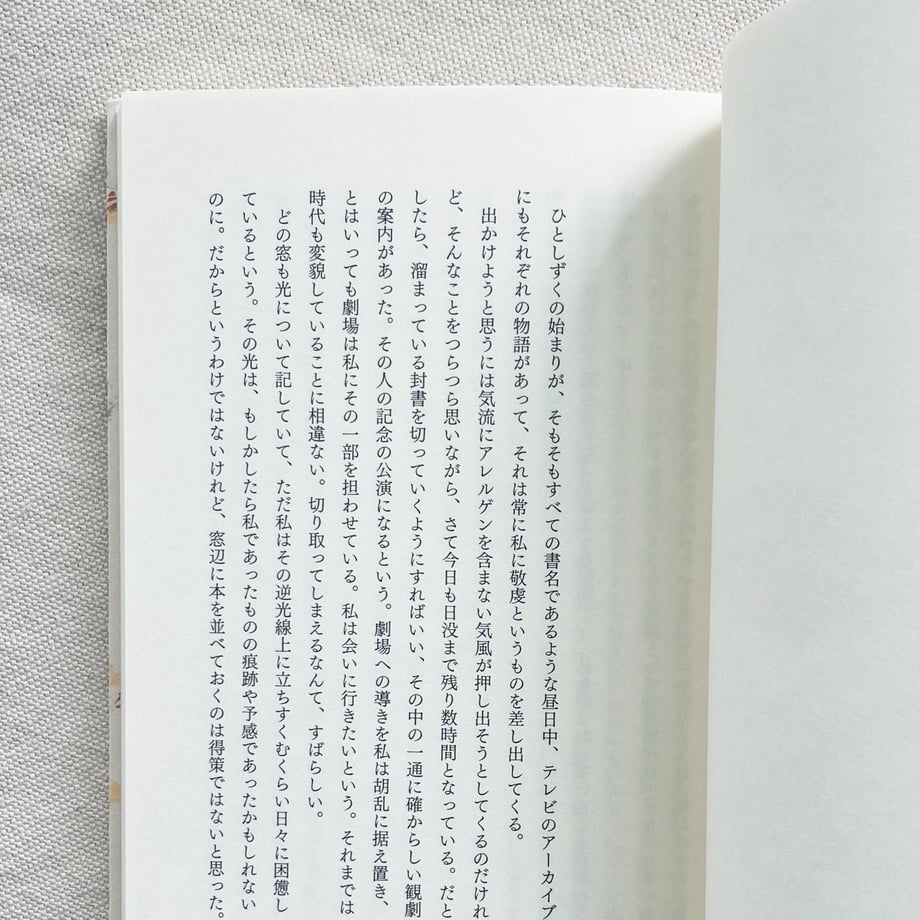 ひとしずくの始まりが、そもそもすべての書名であるような昼日中、テレビのアーカイブ
にもそれぞれの物語があって、それは常に私に敬虔というものを差し出してくる。
出かけようと思うには気流にアレルゲンを含まない気風が押し出そうとしてくるのだけれ
ど、そんなことをつらつら思いながら、さて今日も日没まで残り数時間となっている。だと
したら、溜まっている封書を切っていくようにすればいい、その中の一通に確からしい観劇
の案内があった。その人の記念の公演になるという。劇場への導きを私は胡乱に据え置き、
とはいっても劇場は私にその一部を担わせている。私は会いに行きたいという。それまでは
時代も変貌していることに相違ない。切り取ってしまえるなんて、すばらしい。
どの窓も光について記していて、ただ私はその逆光線上に立ちすくむくらい日々に困憊し
ているという。その光は、もしかしたら私であったものの痕跡や予感であったかもしれない
のに。だからというわけではないけれど、窓辺に本を並べておくのは得策ではないと思った。